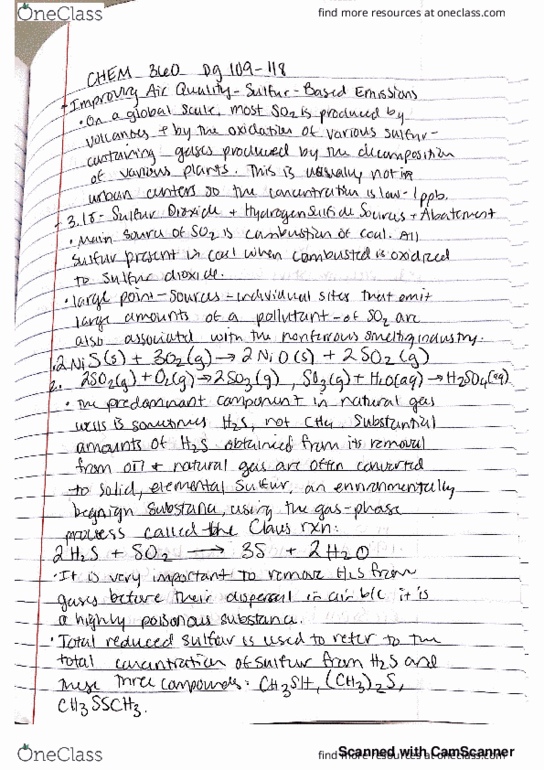 OneClass
find more resources at oneclass.com
CHEM 360 pg 109-118
- Improving Air Quality - Sulfur-Based Emissions
• On a global scale, most SO2 is produced by
volcanoes + by the oxidation of various sulfur-
containing gases produced by the decomposition
of various plants. This is usually not in
urban centers so the concentration is low - 1ppb.
- 3.15 - Sulfur Dioxide + Hydrogen Sulfide Sources + Abatement
• Main source of SO2 is combustion of coal. All
sulfur present in coal when combusted is oxidized
to sulfur dioxide.
• large point-sources - individual sites that emit
large amounts of a pollutant - of SO2 are
also associated with the nonferrous smelting industry.
1. 2NiS(s) + 3O2(g) → 2NiO(s) + 2SO2(g)
2. 2SO2(g) + O2(g) → 2SO3(g), SO3(g) + H2O(aq) → H2SO4(aq)
• The predominant component in natural gas
wells is sometimes H2S, not CH4. Substantial
amounts of H2S obtained from its removal
from oil + natural gas are often converted
to solid, elemental sulfur, an environmentally
begnign substance, using the gas-phase
process called the Claus rxn:
2H2S + SO2 → 3S + 2H2O
• It is very important to remove H2S from
gases before their dispersal in air b/c it is
a highly poisonous substance.
• Total reduced sulfur is used to refer to the
total concentration of sulfur from H2S and
these three compounds: CH3SH, (CH3)2S,
CH3SSCH3.
OneClass
find more resources at oneclass.com
Scanned with CamScanner